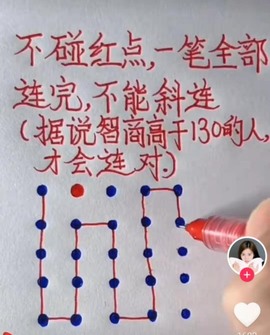 不碰红点,一笔全部
连完,不能斜连
(据说智商高于130的人,
才会连对.)